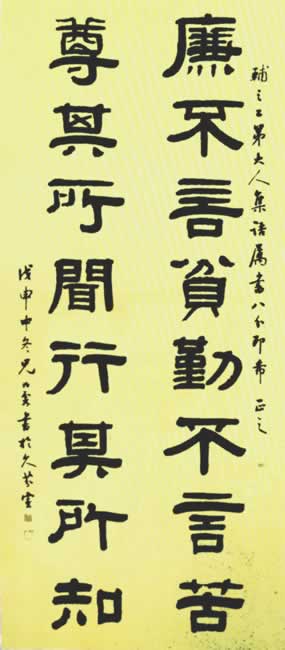 廉不言貧勤不言苦
輔之二弟大人集語属書八分即希 正之
尊其所聞行其所知
戊申中冬兄 書於